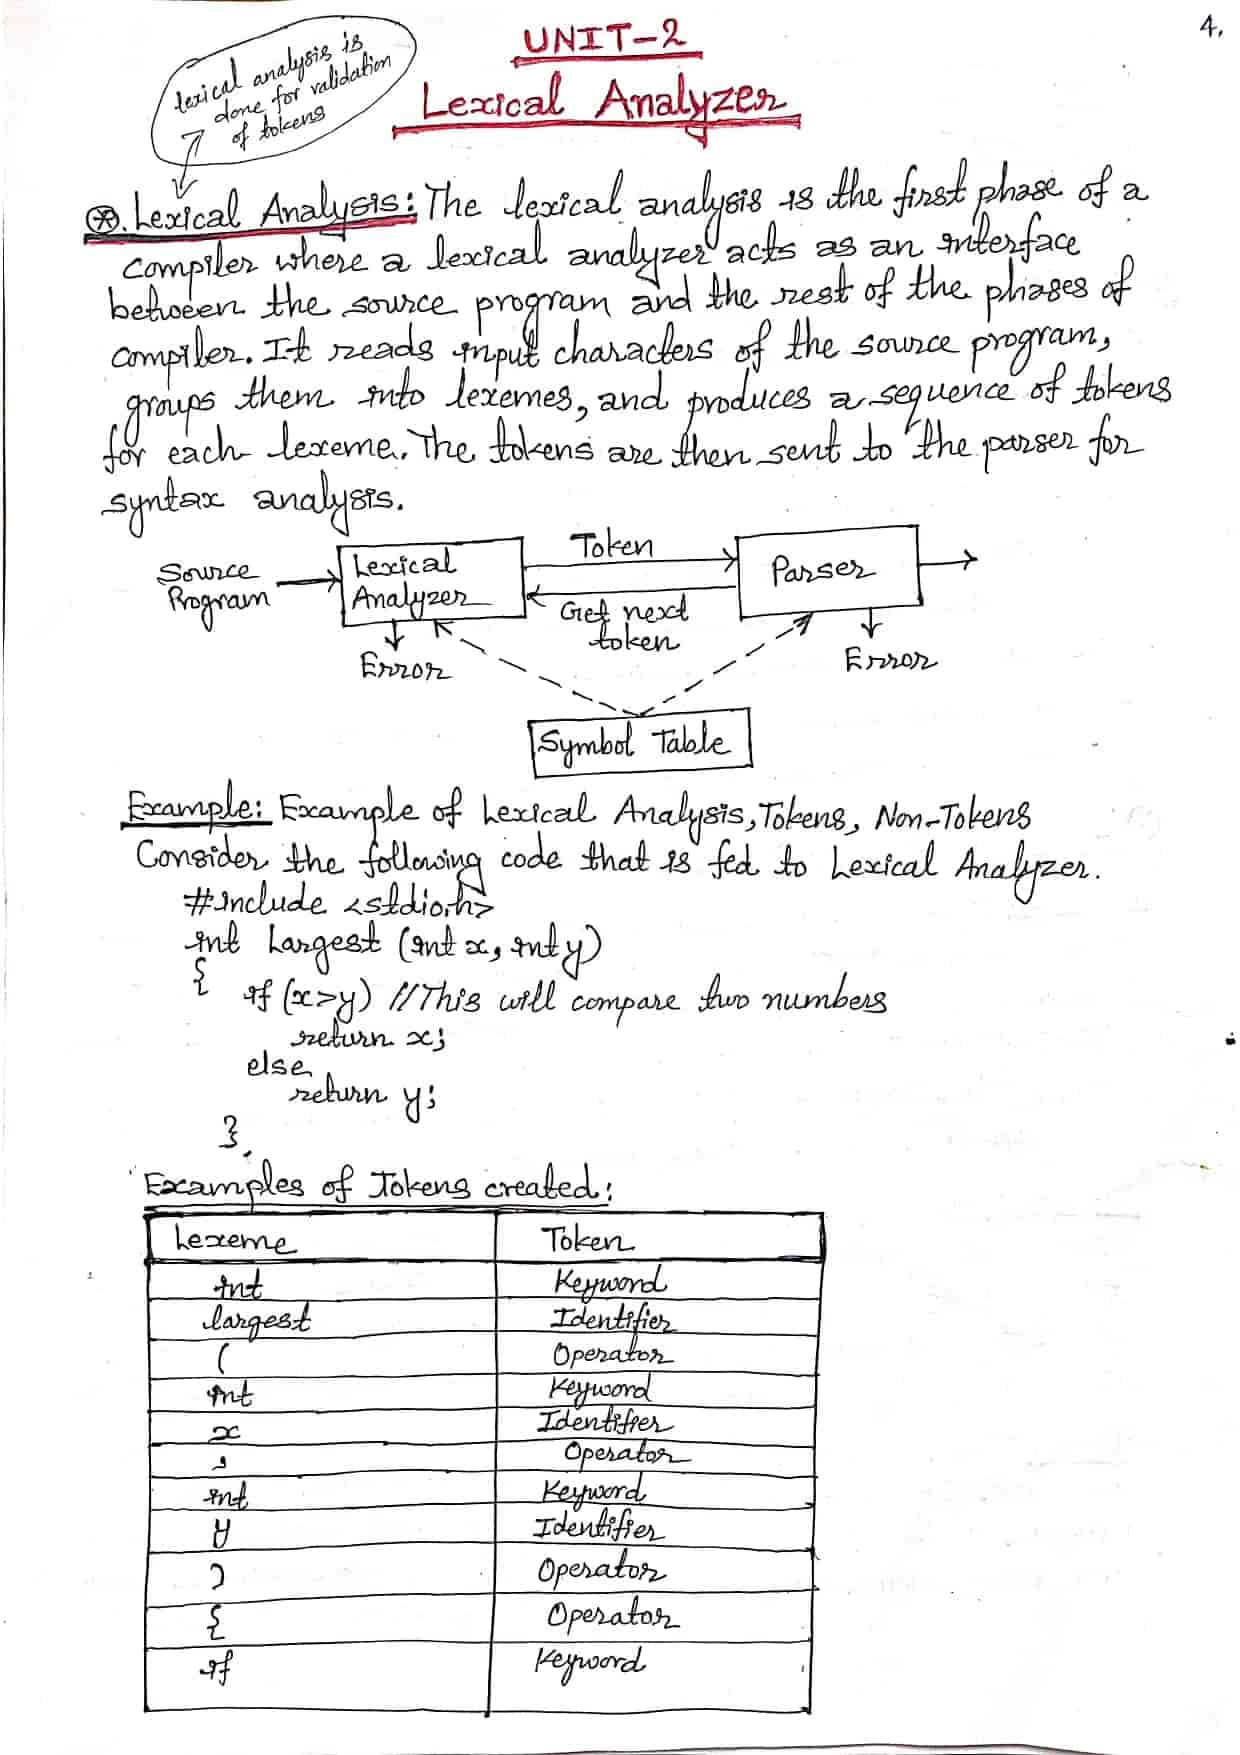 4.
UNIT-2
Lexical Analyzer
lexical analysis is
done for validation
of tokens
*. Lexical Analysis: The lexical analysis is the first phase of a
compiler where a lexical analyzer acts as an interface
between the source program and the rest of the phases of
compiler. It reads input characters of the source program,
groups them into lexemes, and produces a sequence of tokens
for each lexeme. The tokens are then sent to the parser for
syntax analysis.
Source
Program
Lexical
Analyzer
Token
Get next
token
Parser
Error
Error
Symbol Table
Example: Example of Lexical Analysis, Tokens, Non-Tokens
Consider the following code that is fed to Lexical Analyzer.
#include <stdio.h>
int Largest (int x, int y)
{
if (x>y) //This will compare two numbers
return x;
else
return y;
}.
Examples of Tokens created:
Lexeme Token
int Keyword
largest Identifier
( Operator
int Keyword
x Identifier
, Operator
int Keyword
y Identifier
) Operator
{ Operator
if Keyword